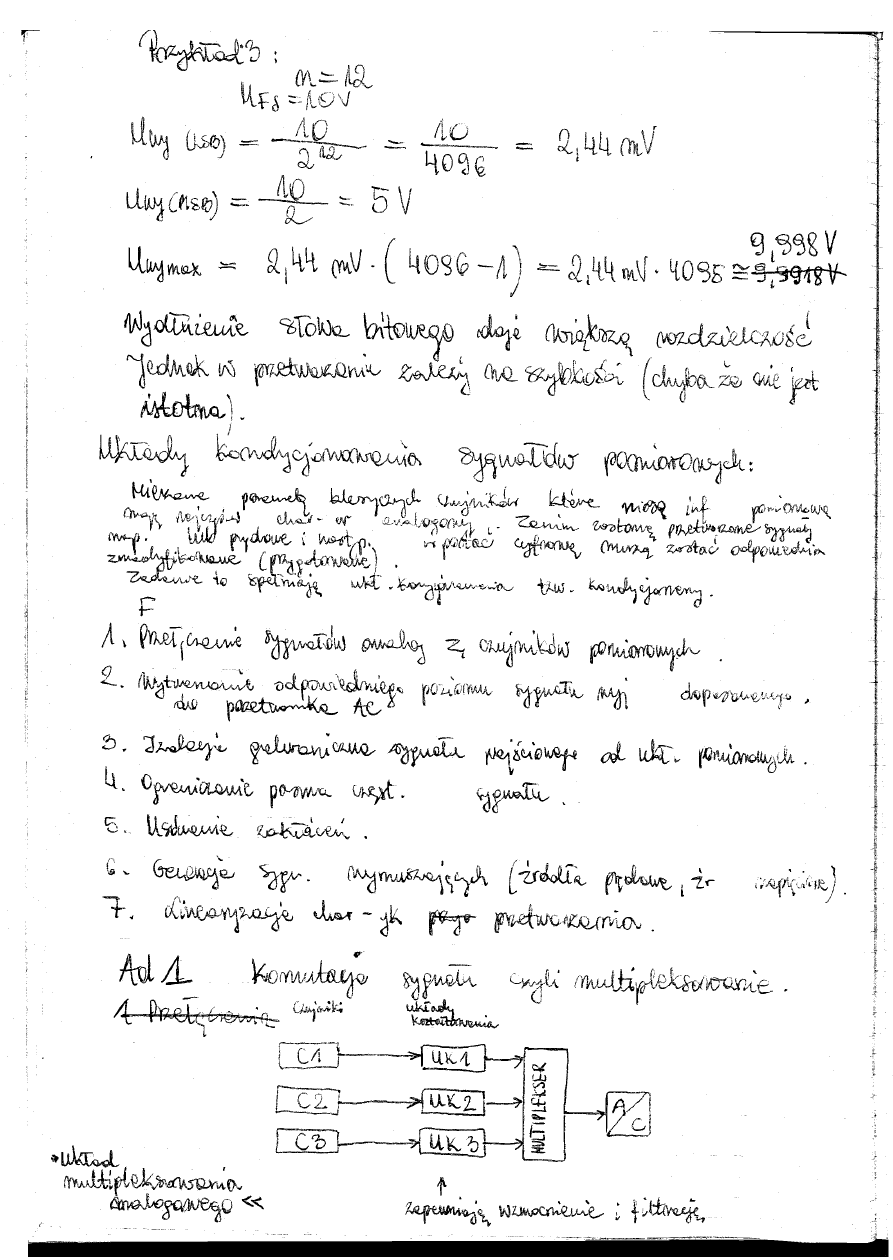 Przykład 3 :
n = 12
U_FS = 10V
Uwy (LSB) = 10 / 2^12 = 10 / 4096 = 2,44 mV
Uwy (MSB) = 10 / 2 = 5 V
9,998 V
Uwymax = 2,44 mV · ( 4096 - 1 ) = 2,44 mV · 4095 ≅ 9,9918 V
Wydłużenie słowa bitowego daje większą rozdzielczość
Jednak w przetwarzaniu zależy na szybkości (chyba że nie jest
istotna).
Układy kondycjonowania sygnałów pomiarowych:
które niosą inf pomiarową
mają char-er analogowy. Zanim zostaną przetworzone sygnały
np. i nast p. w postać cyfrową muszą zostać odpowiednio
zmodyfikowane (przygotowane).
Zadanie to spełniają ukł. tzw. kondycjonery.
F
1. Przełączanie sygnałów analog z czujników pomiarowych.
2. Wytwarzanie odpowiedniego poziomu sygnału wyj dopasowanego
do przetwornika AC
3. Izolacje galwaniczna sygnału wejściowego od ukł. pomiarowych.
4. Ograniczanie pasma częst. sygnału.
5. Usuwanie zakłóceń.
6. Generacja sygn. wymuszających (źródła prądowe, źr napięciowe).
7. Linearyzacja char-yk przetwarzania.
Ad 1 Komutacja sygnału czyli multipleksowanie.
1 Przełączanie czujniki układy
kształtowania
C1 UK1
C2 UK2
C3 UK3
MULTIPLEKSER
A/C
*Układ
multipleksowania
analogowego <<
zapewniają wzmocnienie i filtrację